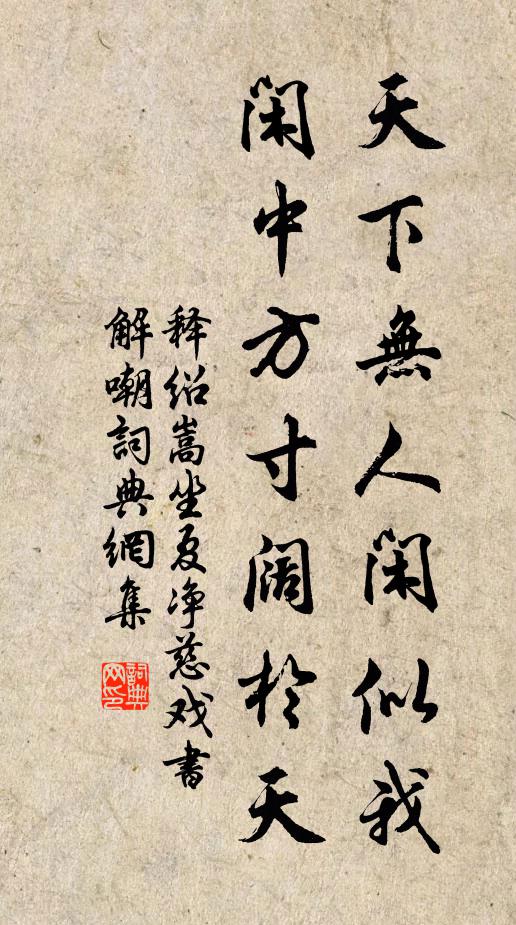 天下無人閑似我
閑中方寸阔於天
释绍嵩坐夏净慈戏書
解嘲詞典網集
詞典网印